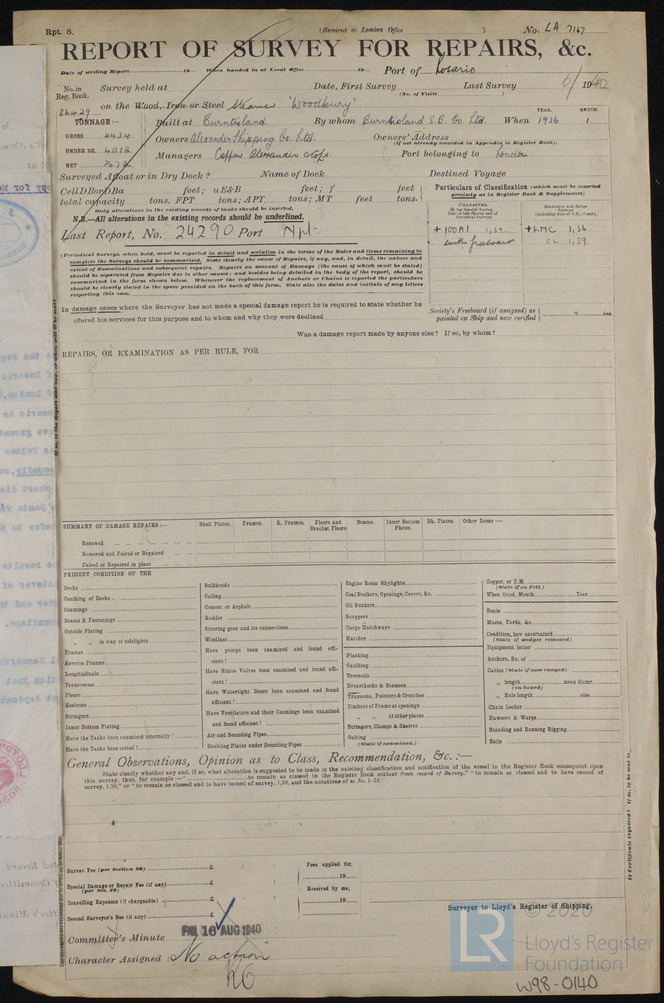 Rpt. 8.
(Received at London Office
)
No. LA 7167
REPORT OF SURVEY FOR REPAIRS, &c.
Date of writing Report 19 When handed in at Local Office 19 Port of Rosario
No. in Reg. Book.
Survey held at Date, First Survey Last Survey 6/ 1940
(No. of Visits )
26429 on the Wood, Iron or Steel Steamer "Woodbury"
TONNAGE:—
GROSS 4434
UNDER DK. 4012
NET
Built at Burntisland By whom Burntisland S.B. Co. Ltd. When YEAR. 1936 MONTH. 1
Owners Alexander Shipping Co. Ltd. Owners' Address
(if not already recorded in Appendix to Register Book).
Managers Capper Alexander & Co. Port belonging to London
Surveyed Afloat or in Dry Dock? Name of Dock Destined Voyage
CellDBorDBa feet; uE&B feet; f feet
total capacity tons. FPT tons; APT tons; MT feet tons.
Only alterations in the existing records of tanks should be inserted.
N.B.—All alterations in the existing records should be underlined.
Last Report, No. 24290 Port Npt.
Particulars of Classification (which must be inserted precisely as in Register Book & Supplements)
+100A1 1,39.
with freeboard
+LMC 1,36.
CL 1,39.
(Periodical Surveys, when held, must be reported in detail and seriatim in the terms of the Rules and items remaining to
complete the Surveys should be summarised. State clearly the cause of Repairs, if any, and, in detail, the nature and
extent of Examinations and subsequent repairs. Repairs on account of Damage (the cause of which must be stated)
should be separated from Repairs due to other causes; and besides being detailed in the body of the report, should be
summarised in the form shown below. Whenever the replacement of Anchors or Chains is reported the particulars
should be clearly stated in the space provided on the back of this form. State also the dates and initials of any letters
respecting this case.
In damage cases where the Surveyor has not made a special damage report he is required to state whether he
offered his services for this purpose and to whom and why they were declined
Society's Freeboard (if assigned) as painted on Ship and now verified ins.
Was a damage report made by anyone else? If so, by whom?
REPAIRS, OR EXAMINATION AS PER RULE, FOR
SUMMARY OF DAMAGE REPAIRS:— Shell Plates. Frames. R. Frames. Floors and Bracket Floors Beams. Inner Bottom Plates. Dk. Plates. Other Items:—
Renewed
Removed and Faired or Repaired
Faired or Repaired in place
PRESENT CONDITION OF THE
Decks
Caulking of Decks
Coamings
Beams & Fastenings
Outside Plating
" " in way of sidelights
Frames
Reverse Frames
Longitudinals
Transverses
Floors
Keelsons
Stringers
Inner Bottom Plating
Have the Tanks been examined internally?
Have the Tanks been tested?
Bulkheads
Ceiling
Cement or Asphalt
Rudder
Steering gear and its connections
Windlass
Have pumps been examined and found efficient?
Have Sluice Valves been examined and found efficient?
Have Watertight Doors been examined and found efficient?
Have Ventilators and their Coamings been examined and found efficient?
Air and Sounding Pipes
Doubling Plates under Sounding Pipes
Engine Room Skylights
Coal Bunkers, Openings, Covers, &c.
Oil Bunkers
Scuppers
Cargo Hatchways
Hatches
Planking
Caulking
Treenails
Breasthooks & Riemen
Transoms, Pointers & Crutches
Timbers of Frame at openings
" " at other places
Stringers, Clamps & Shelves
Salting
(State if examined.)
Copper, or Y.M.
(State if on Felt.)
When fitted, Month Year
Boats
Masts, Yards, &c.
Condition, how ascertained
(State if wedges removed)
Equipment letter
Anchors, No. of
Cables (State if now ranged)
" length mean diamr
(on board)
" Rule length size
Chain Locker
Hawsers & Warps
Standing and Running Rigging
Sails
General Observations, Opinion as to Class, Recommendation, &c. :—
State clearly whether any and, if so, what alteration is suggested to be made in the existing classification and notification of the vessel in the Register Book consequent upon
Survey Fee (per Section 29) £
Special Damage or Repair Fee (if any) £
(per Sec. 29)
Travelling Expenses (if chargeable) £
Second Surveyor's Fee (if any) £
Fees applied for,
19
Received by me,
19
Surveyor to Lloyd's Register of Shipping.
Committee's Minute FRI. 16 AUG 1940
Character Assigned No action
© 2020
LR
Lloyd's Register
Foundation
W98-0140